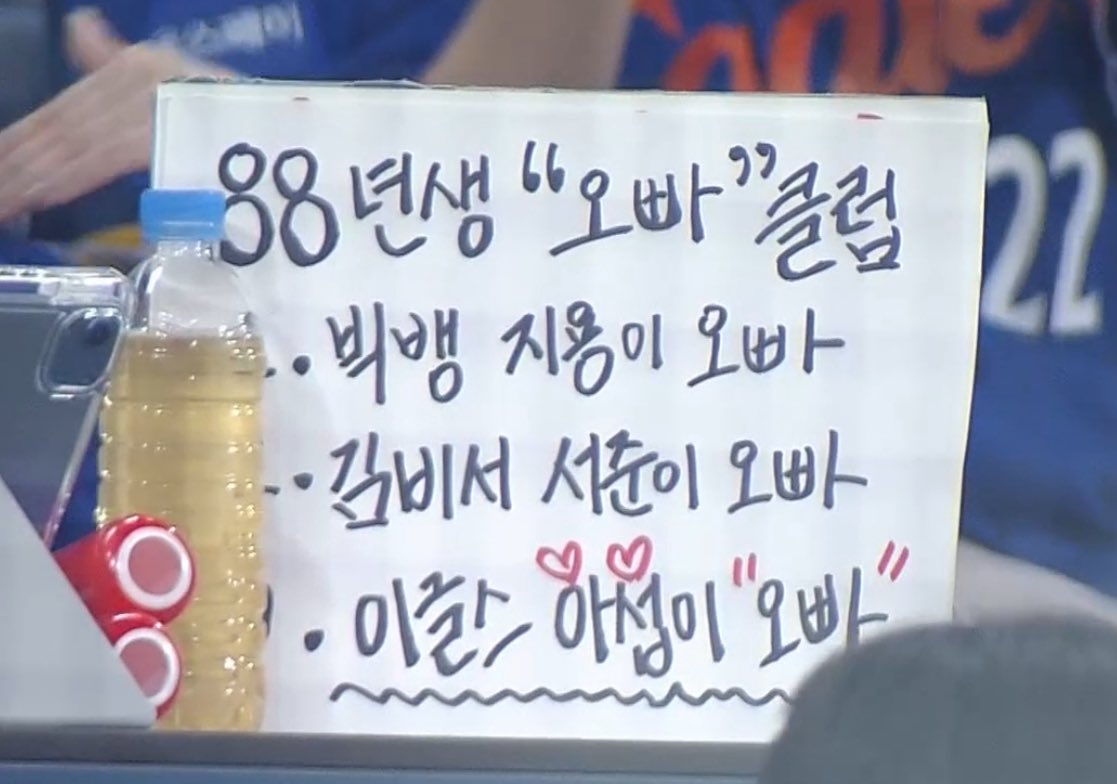 88년생 “오빠” 클럽
. 빅뱅 지용이 오빠
. 김비서 서준이 오빠
. 이글스 아섭이 "오빠"
22